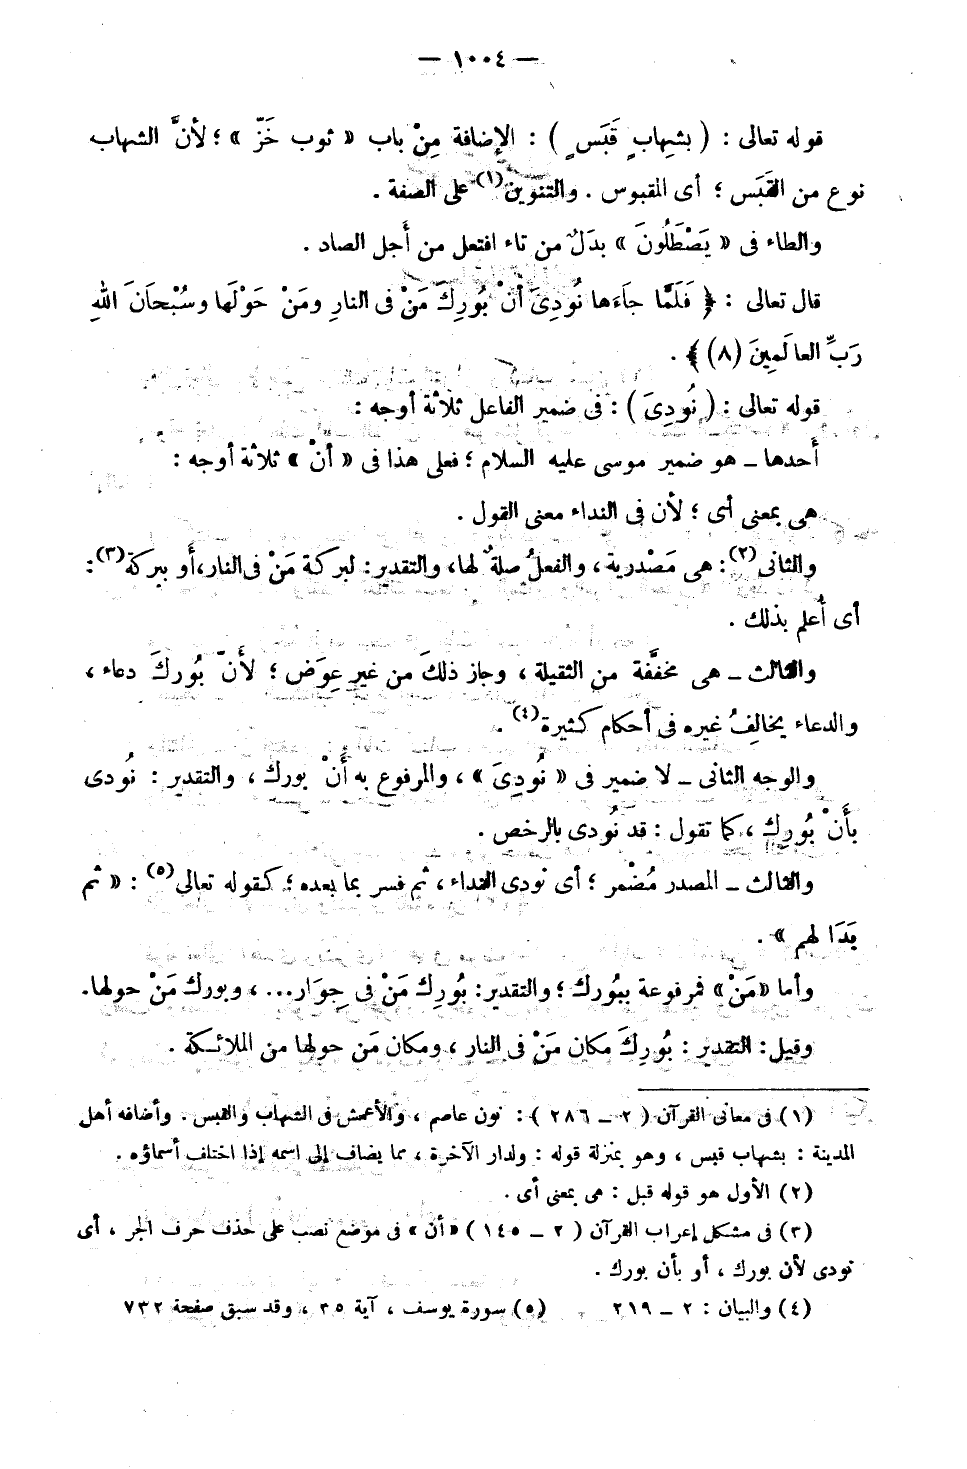 — ١٠٠٤ —
قوله تعالى : ( بشِهابٍ قَبَسٍ ) : الإضافة مِنْ باب « ثوب خَزّ » ؛ لأنَّ الشهاب
نوع من القَبَس ؛ أى المقبوس . والتنوين(١) على الصفة .
والطاء فى « يَصْطَلُونَ » بدَلٌ من تاء افتعل من أَجل الصاد .
قال تعالى : ﴿ فَلَمَّا جاَءَها نُودِىَ أنْ بُورِكَ مَنْ فى النارِ ومَنْ حَوْلَها وسُبْحاَنَ اللهِ
رَبِّ العالَمِينَ (٨) ﴾ .
قوله تعالى : ( نُودِىَ ) : فى ضمير الفاعل ثلاثة أوجه :
أَحدها ـ هو ضمير موسى عليه السلام ؛ فعلى هذا فى « أنْ » ثلاثة أوجه :
هى بمعنى أى ؛ لأن فى النداء معنى القول .
والثانى(٢) : هى مَصْدرية ، والفعلُ صلةٌ لها، والتقدير : لبركة مَنْ فى النار، أَو ببركة(٣) :
أى أُعلم بذلك .
والثالث ـ هى مخفَّفة من الثقيلة ، وجاز ذلكَ من غير عِوَض ؛ لأَنّ بُوركَ دعاء ،
والدعاء يخالِفُ غيره فى أحكام كثيرة(٤) .
والوجه الثانى ـ لا ضمير فى « نُودِىَ » ، والمرفوع به أَنْ بورك ، والتقدير : نُودى
بأَنْ بُورِك ، كما تقول : قد نُودى بالرخص .
والثالث ـ المصدر مُضْمر ؛ أى نودى النداء ، ثم فسر بما بعده ؛ كقوله تعالى(٥) : « ثم
بَدَا لهم » .
وأما « مَنْ » فمرفوعة ببُورك ؛ والتقدير : بُورِك مَنْ فى جِوَار... ، وبورك مَنْ حولها.
وقيل : التقدير : بُورِكَ مكان مَنْ فى النار ، ومكان مَن حولها من الملائكة .
(١) فى معانى القرآن ( ٢ ــ ٢٨٦ ) : نون عاصم ، والأعمش فى الشهاب والقبس . وأضافه أهل
المدينة : بشهاب قبس ، وهو بمنزلة قوله : ولدار الآخرة ، مما يضاف إلى اسمه إذا اختلف أسماؤه .
(٢) الأول هو قوله قبل : هى بمعنى أى .
(٣) فى مشكل إعراب القرآن ( ٢ ــ ١٤٥ ) « أن » فى موضع نصب على حذف حرف الجر ، أى
نودى لأن بورك ، أو بأن بورك .
(٤) والبيان : ٢ ــ ٢١٩ (٥) سورة يوسف ، آية ٣٥ ، وقد سبق صفحة ٧٣٢